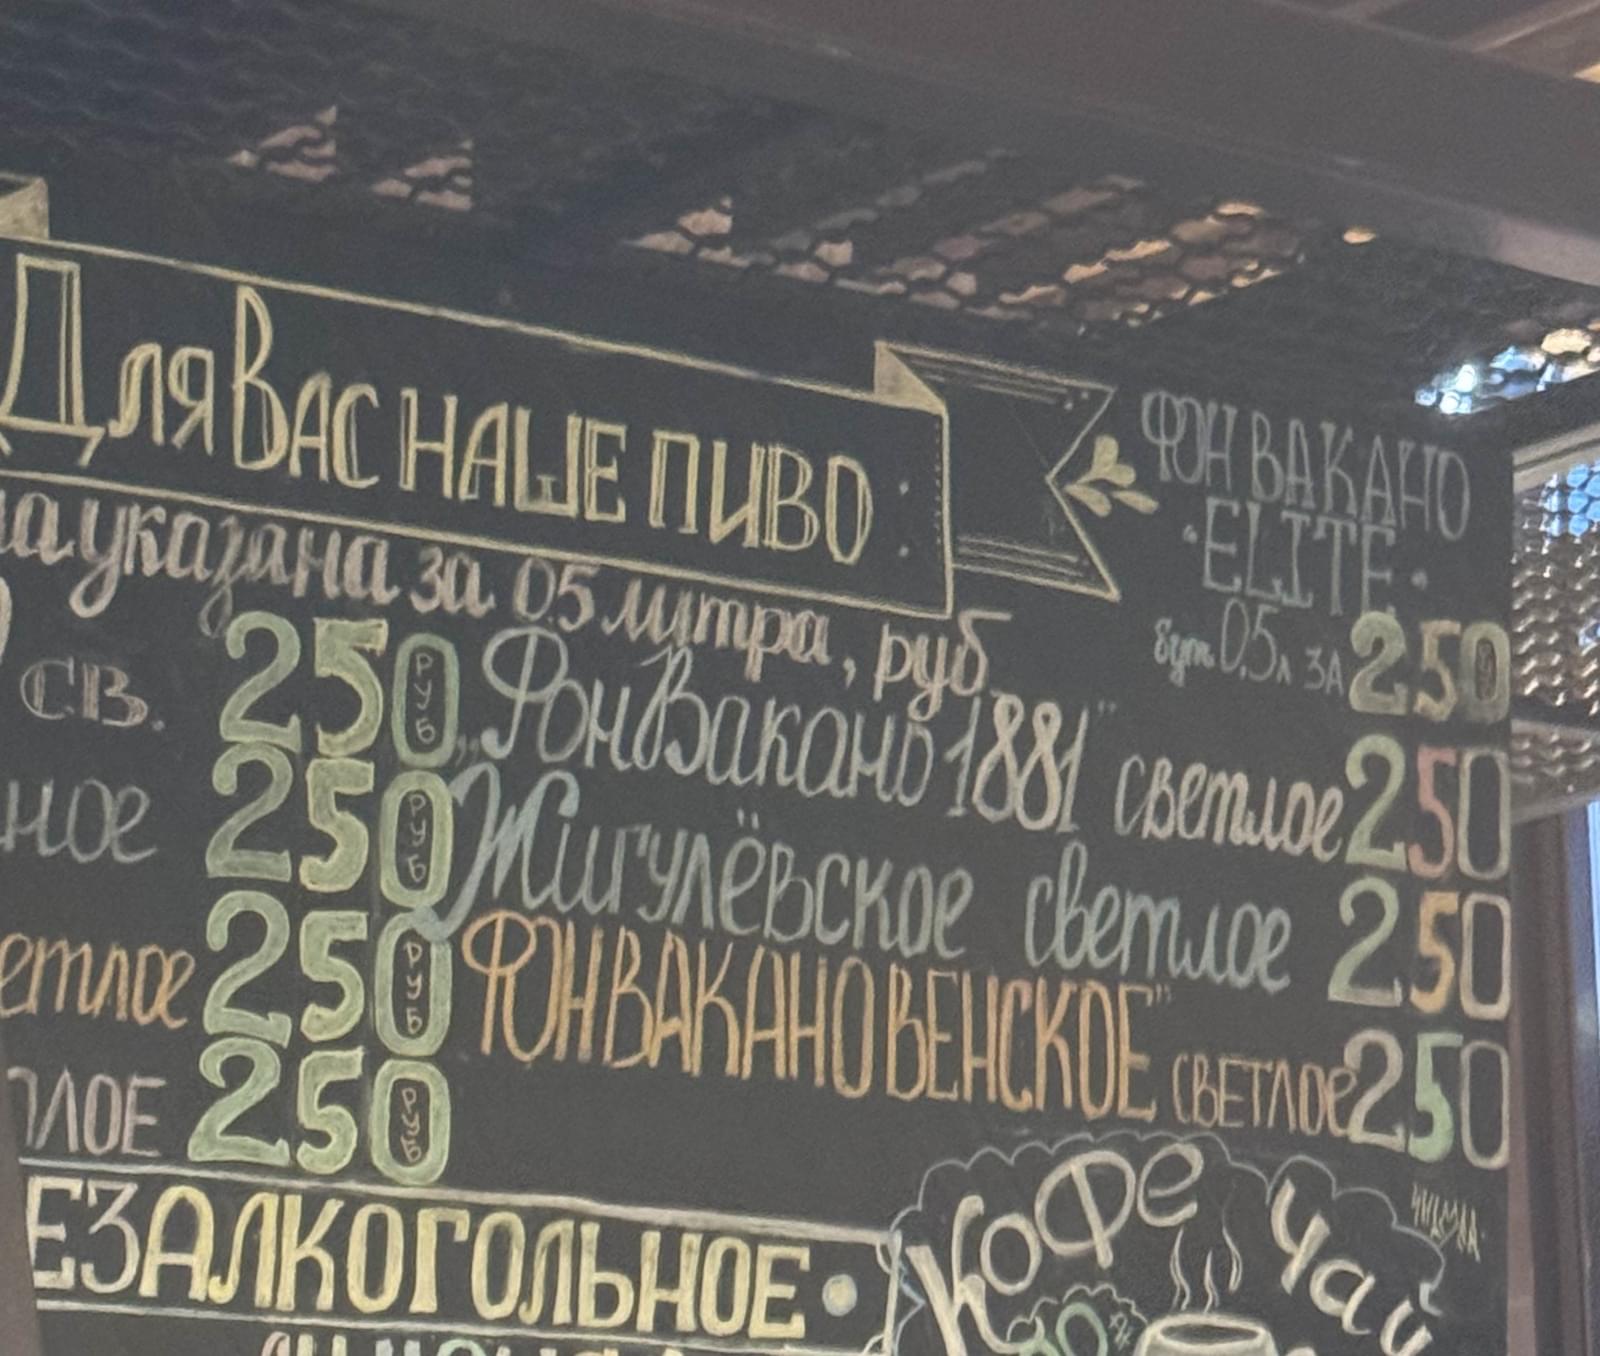 Для Вас наше пиво
ФОН ВАКАНО
·ELITE·
бут. 0,5л ЗА 250
указана за 0.5 литра, руб.
СВ. 250 РУБ
„Фон Вакано 1881" светлое 250
ное 250 РУБ
Жигулёвское светлое 250
етлое 250 РУБ
ФОН ВАКАНО ВЕНСКОЕ" СВЕТЛОЕ 250
ЛОЕ 250 РУБ
ЕЗАЛКОГОЛЬНОЕ
Кофе Чай